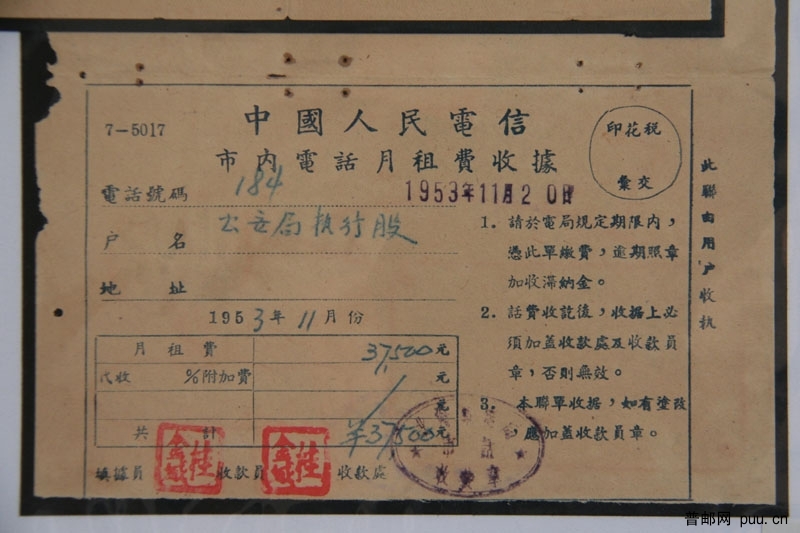 7-5017
中國人民電信
市內電話月租費收據
印花税
彙交
電話號碼 184
1953年11月20日
户名 公安局执行股
地址
1953年11月份
月租費 37,500元
代收 %附加費 元
元
共計 ¥37,500元
填據員 收款員 收款處
1. 請於電局規定期限内，
憑此單繳費，逾期照章
加收滯納金。
2. 話費收訖後，收据上必
須加蓋收款處及收款員
章，否則無效。
3. 本聯單收据，如有塗改
應加蓋收款員章。
此聯由用户收执
收費章
普邮网 puu.cn